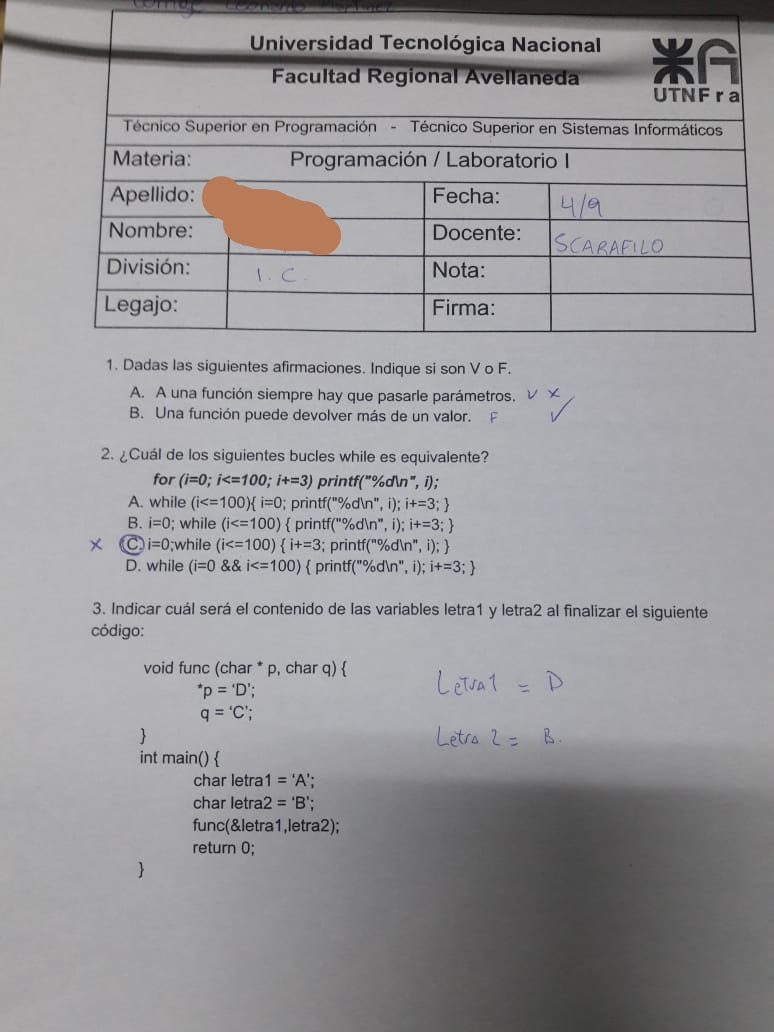 Corrige Leonardo Martinez
Universidad Tecnológica Nacional
Facultad Regional Avellaneda
UTNFra
Técnico Superior en Programación - Técnico Superior en Sistemas Informáticos
Materia: Programación / Laboratorio I
Apellido: Fecha: 4/9
Nombre: Docente: SCARAFILO
División: 1. C. Nota:
Legajo: Firma:
1. Dadas las siguientes afirmaciones. Indique si son V o F.
A. A una función siempre hay que pasarle parámetros. V X
B. Una función puede devolver más de un valor. F ✓
2. ¿Cuál de los siguientes bucles while es equivalente?
for (i=0; i<=100; i+=3) printf("%d\n", i);
A. while (i<=100){ i=0; printf("%d\n", i); i+=3; }
B. i=0; while (i<=100) { printf("%d\n", i); i+=3; }
X C. i=0;while (i<=100) { i+=3; printf("%d\n", i); }
D. while (i=0 && i<=100) { printf("%d\n", i); i+=3; }
3. Indicar cuál será el contenido de las variables letra1 y letra2 al finalizar el siguiente
código:
void func (char * p, char q) {
*p = ‘D’;
q = ‘C’;
}
int main() {
char letra1 = ‘A’;
char letra2 = ‘B’;
func(&letra1,letra2);
return 0;
}
Letra1 = D
Letra 2 = B.